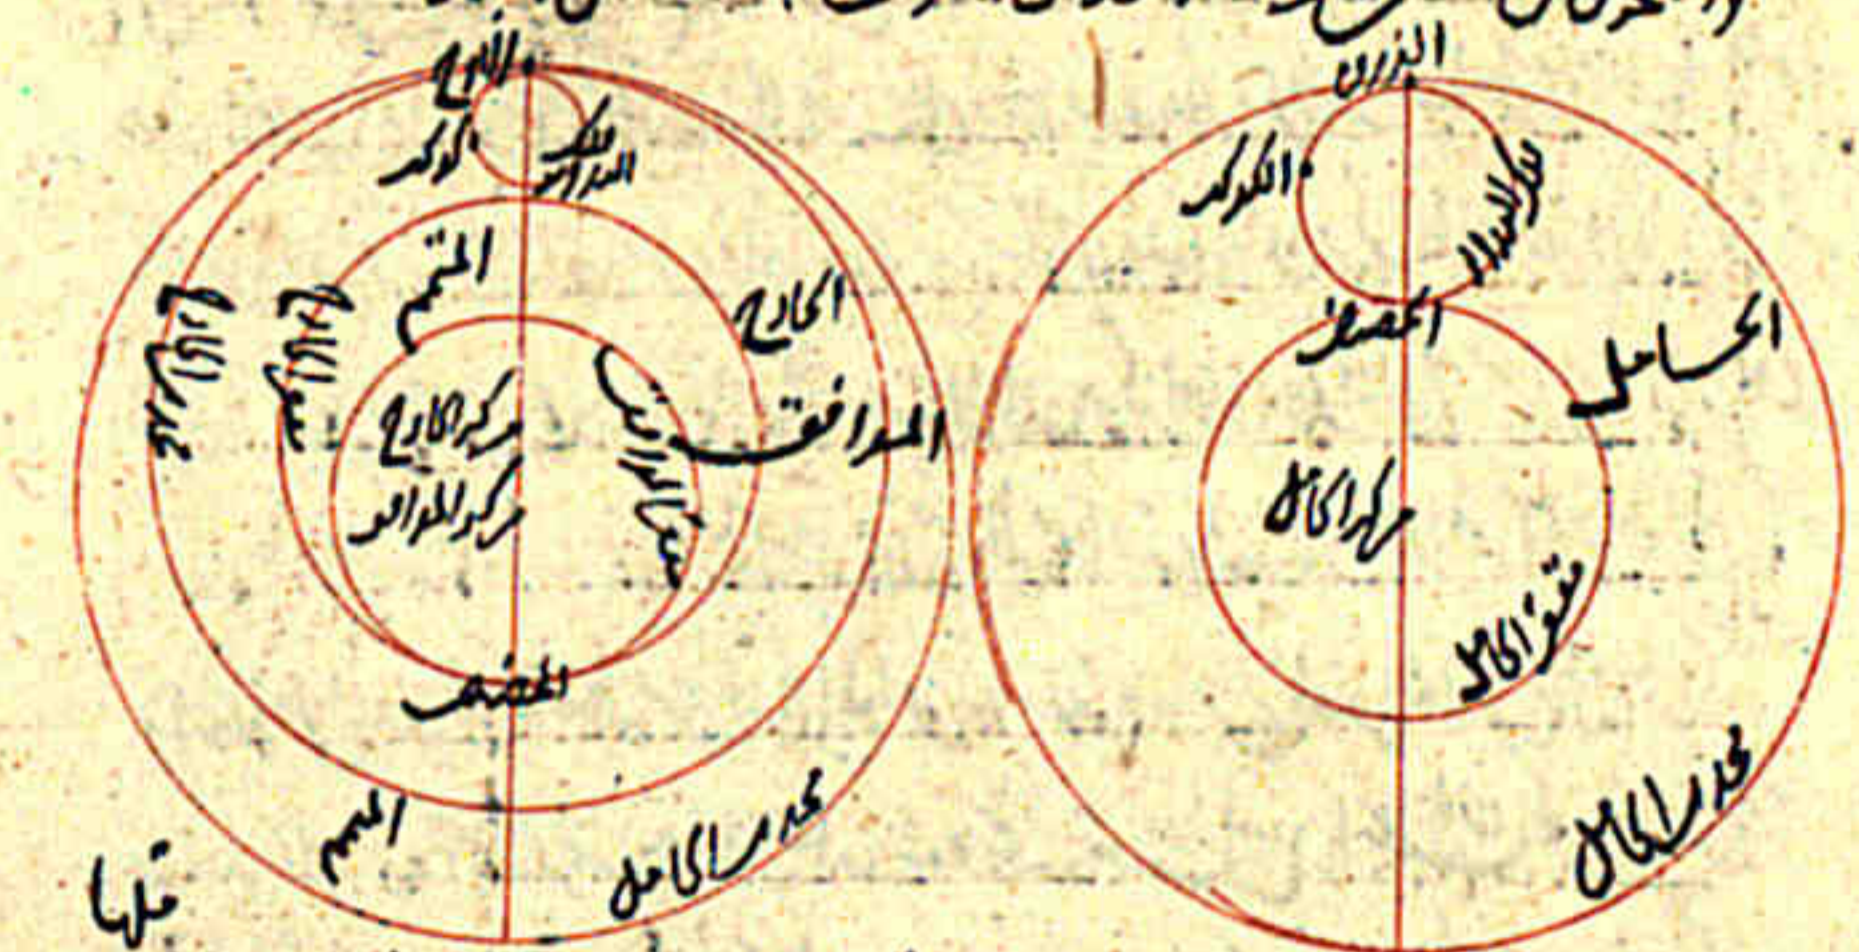 الذروة
الكوكب
فلك التدوير
الحضيض
الحامل
مركز الحامل
مقعر الحامل
محدب الحامل
الاوج
كوكب
فلك التدوير
المتمم
الخارج
محدب الخارج
مقعر الخارج
مركز الخارج
مركز الموافق
الموافق
مقعر الموافق
الحضيض
المتمم
محدب الحامل